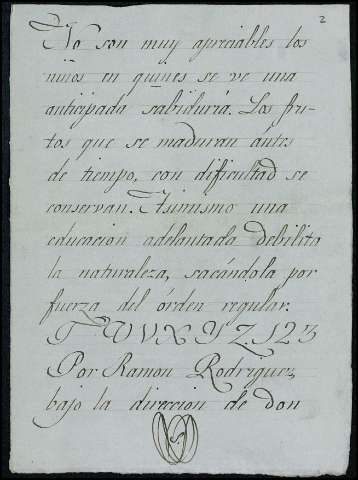 2
No son muy apreciables los
niños en quienes se ve una
anticipada sabiduria. Los fru-
tos que se maduran ántes
de tiempo, con dificultad se
conservan. Asimismo una
educacion adelantada debilita
la naturaleza, sacándola por
fuerza del órden regular.
T. W V X Y Z. 1 2 3
Por Ramon Rodriguez,
bajo la direccion de don